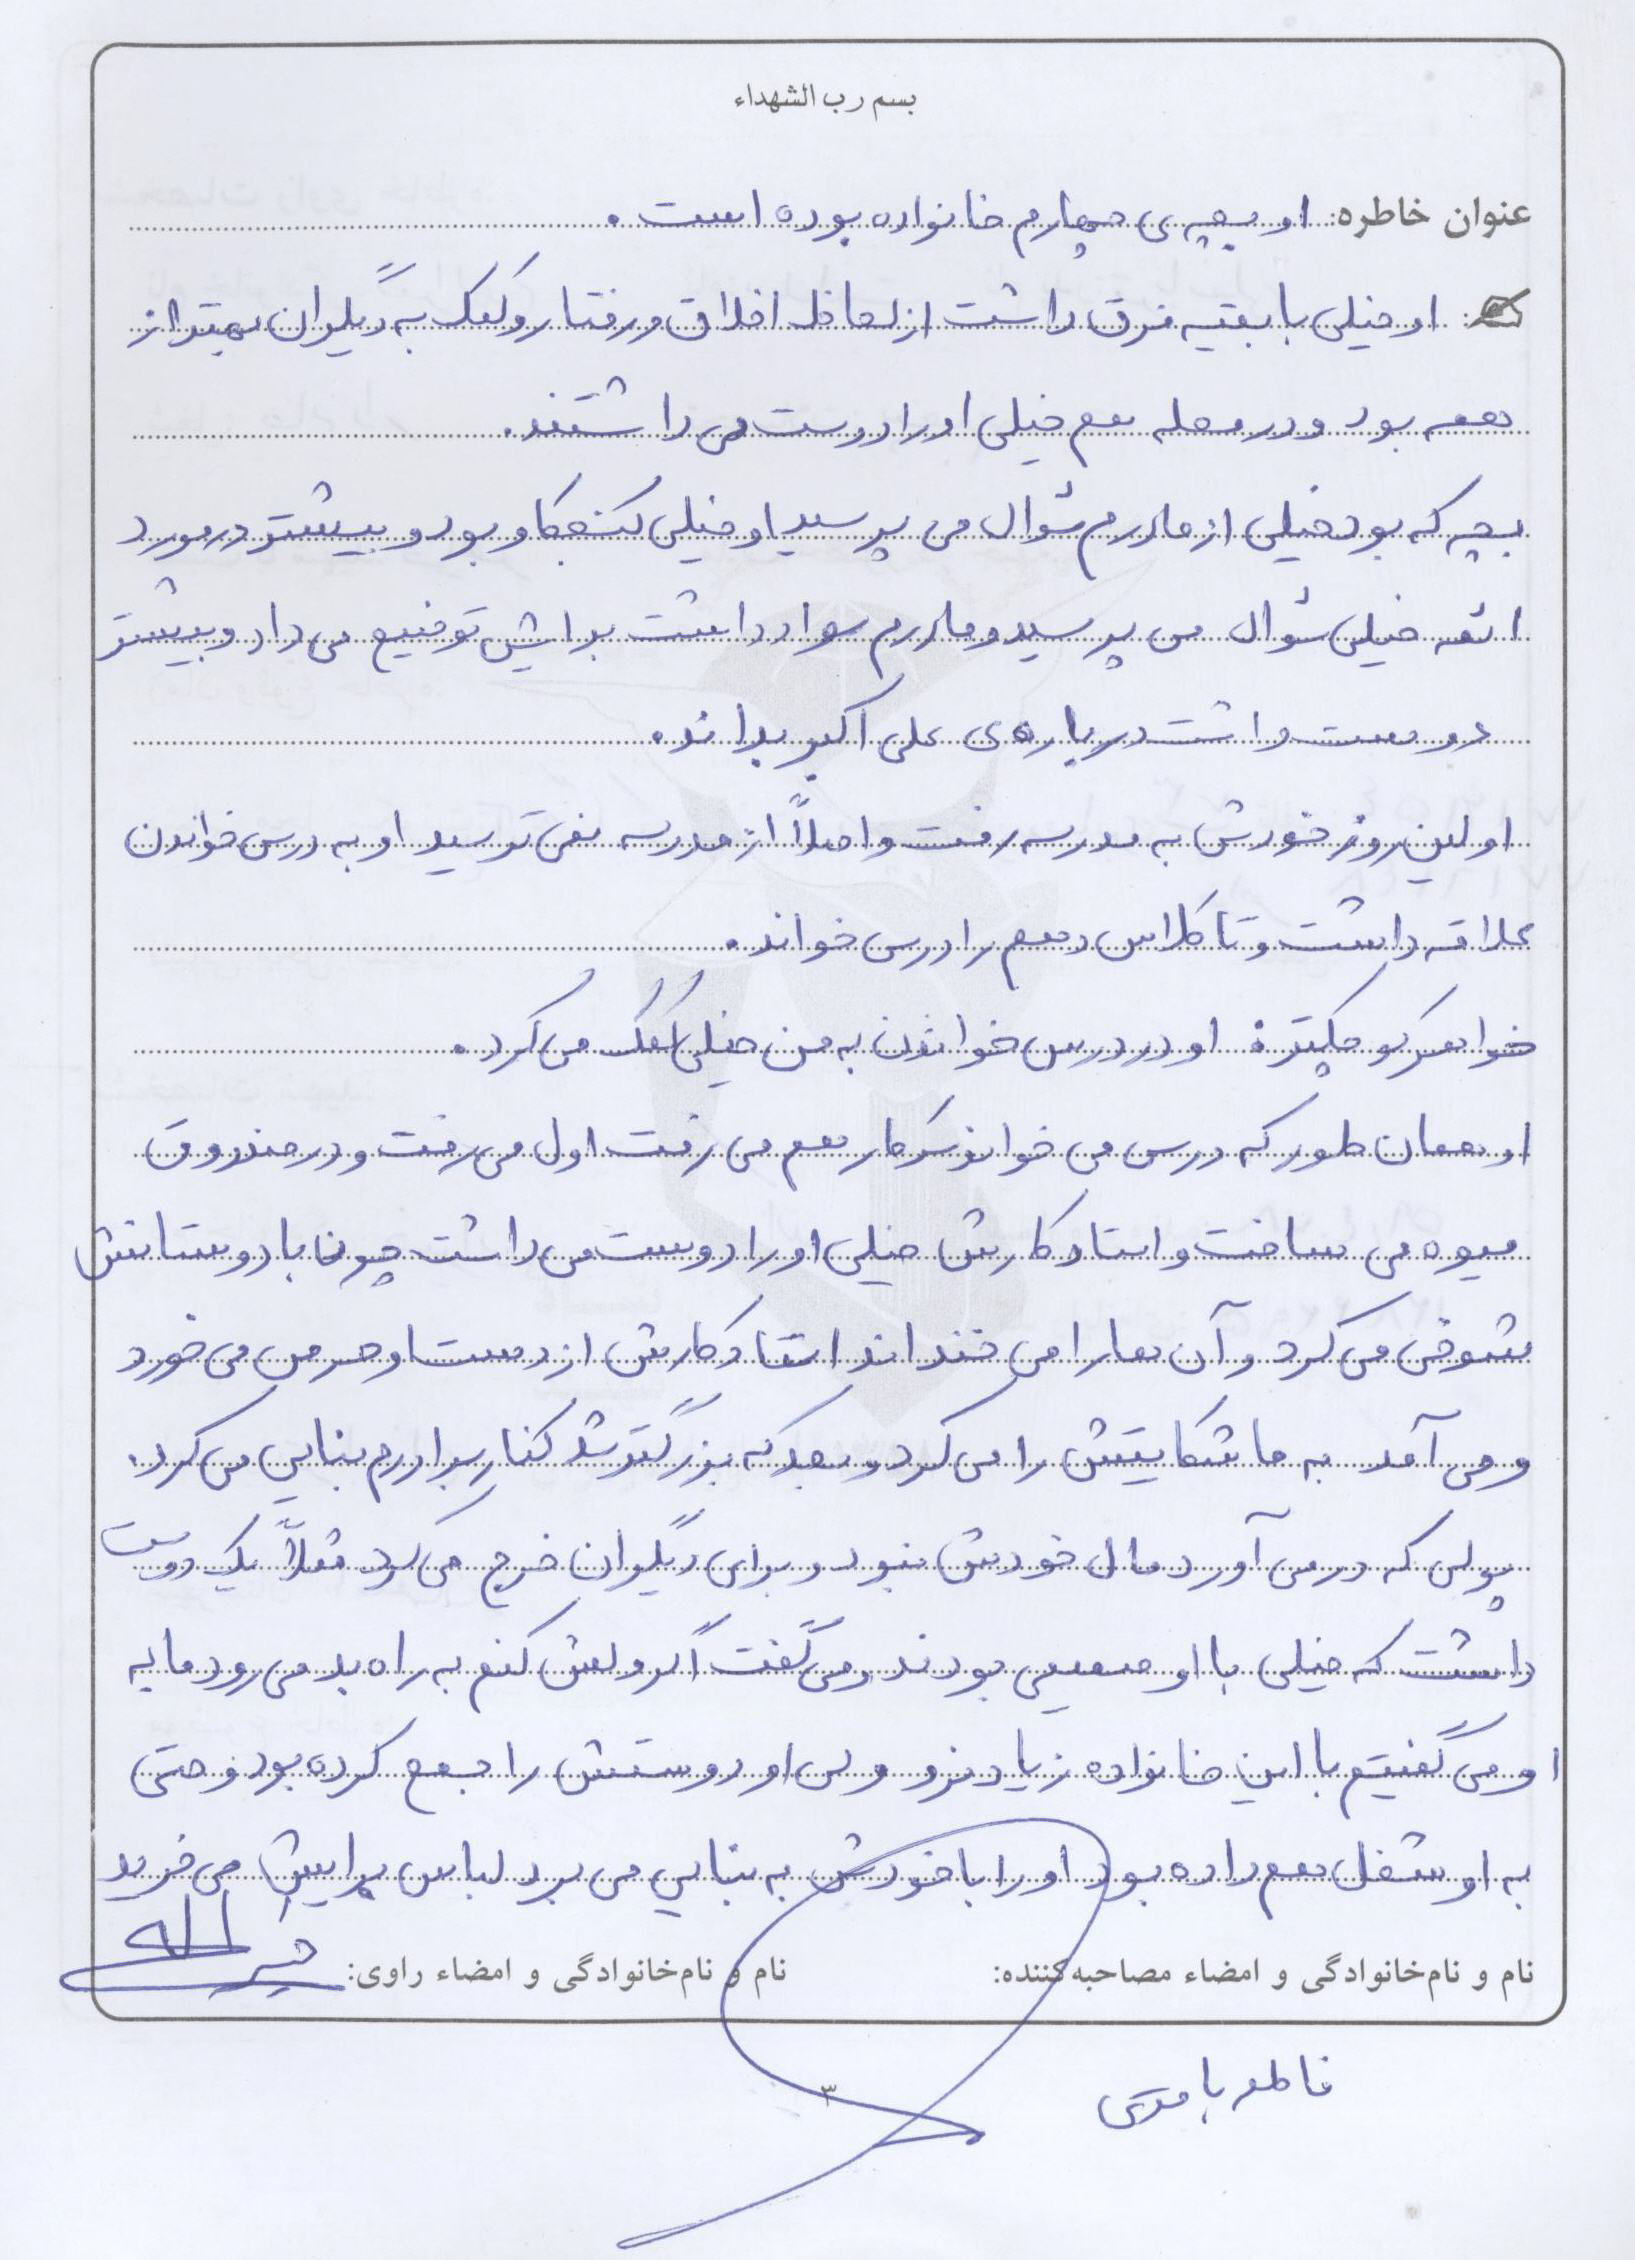 بسم رب الشهداء
عنوان خاطره: او بچه ی چهارم خانواده بوده است.
او خیلی با بقیه فرق داشت از لحاظ اخلاق و رفتار و کمک به دیگران بهتر از
همه بود و در محله هم خیلی او را دوست می داشتند.
بچه که بود خیلی از مادرم سُوال می پرسید او خیلی کنجکاو بود و بیشتر در مورد
ائمه خیلی سُوال می پرسید و مادرم سواد داشت برایش توضیح می داد و بیشتر
دوست داشت درباره ی علی اکبر بداند.
اولین روز خودش به مدرسه رفت و اصلاً از مدرسه نمی ترسید او به درس خواندن
علاقه داشت و تا کلاس دهم را درس خواند.
خواهر کوچکتر: او در درس خواندن به من خیلی کمک می کرد.
او همان طور که درس می خواند سرکار هم می رفت اول می رفت و در صندوق
میوه می ساخت و استاد کارش خیلی او را دوست می داشت چون با دوستانش
شوخی می کرد و آن ها را می خنداند استاد کارش از دست او حرص می خورد
و می آمد به ما شکایتش را می کرد و بعد که بزرگتر شد کنار برادرم بنایی می کرد.
پولی که در می آورد مال خودش نبود و برای دیگران خرج می کرد مثلاً یک دوست
داشت که خیلی با او صمیمی بودند و می گفت اگر ولش کنم به راه بد می رود ما به
او می گفتیم با این خانواده زیاد نرو ولی او دوستش را جمع کرده بود و حتی
به او شغل هم داده بود او را با خودش به بنایی می برد لباس برایش می خرید
نام و نام خانوادگی و امضاء مصاحبه کننده:
نام و نام خانوادگی و امضاء راوی:
فاطمه
۳